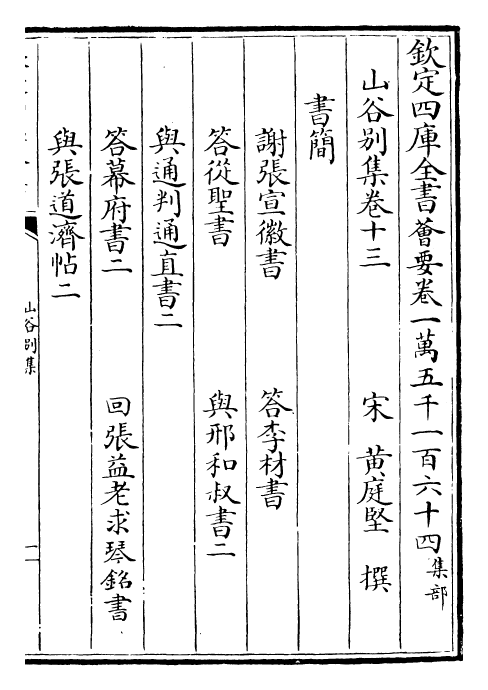 欽定四庫全書薈要卷一萬五千一百六十四集部
山谷别集卷十三　宋　黄庭堅　撰
書簡
謝張宣徽書　答李材書
答從聖書　與邢和叔書二
與通判通直書二
答幕府書二　回張益老求琴銘書
與張道濟帖二
山谷别集
一